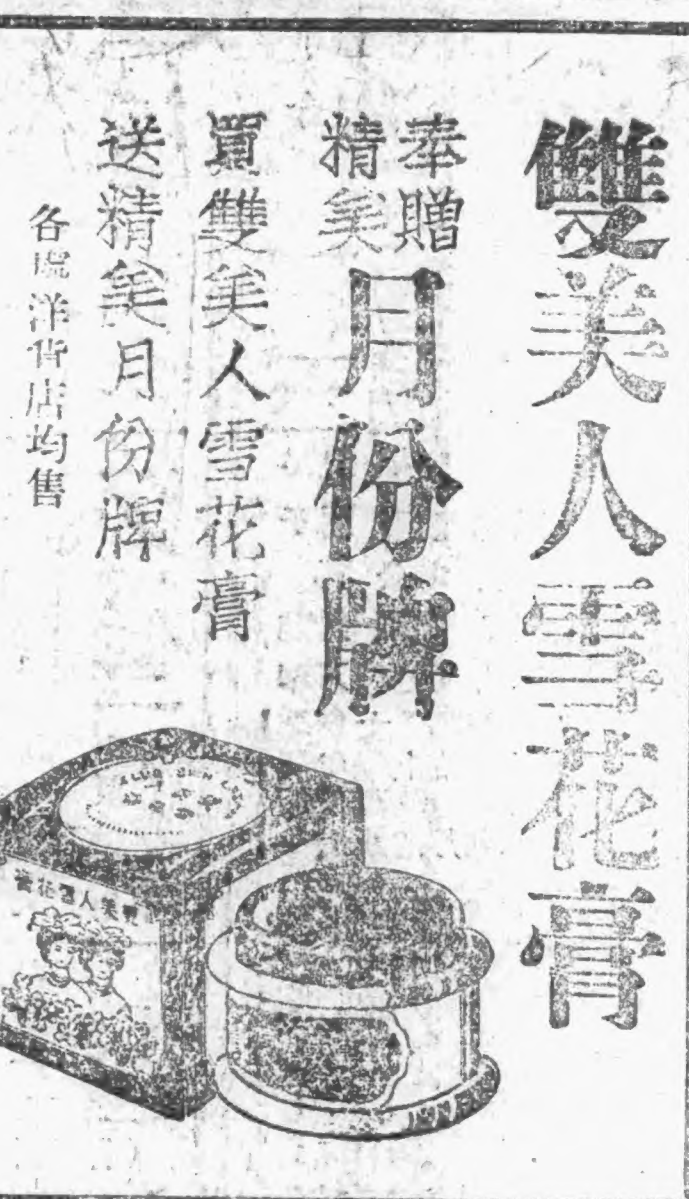 雙美人雪花膏
奉贈
精美
月份牌
買雙美人雪花膏
送精美月份牌
各處洋貨店均售
膏花雪人美雙